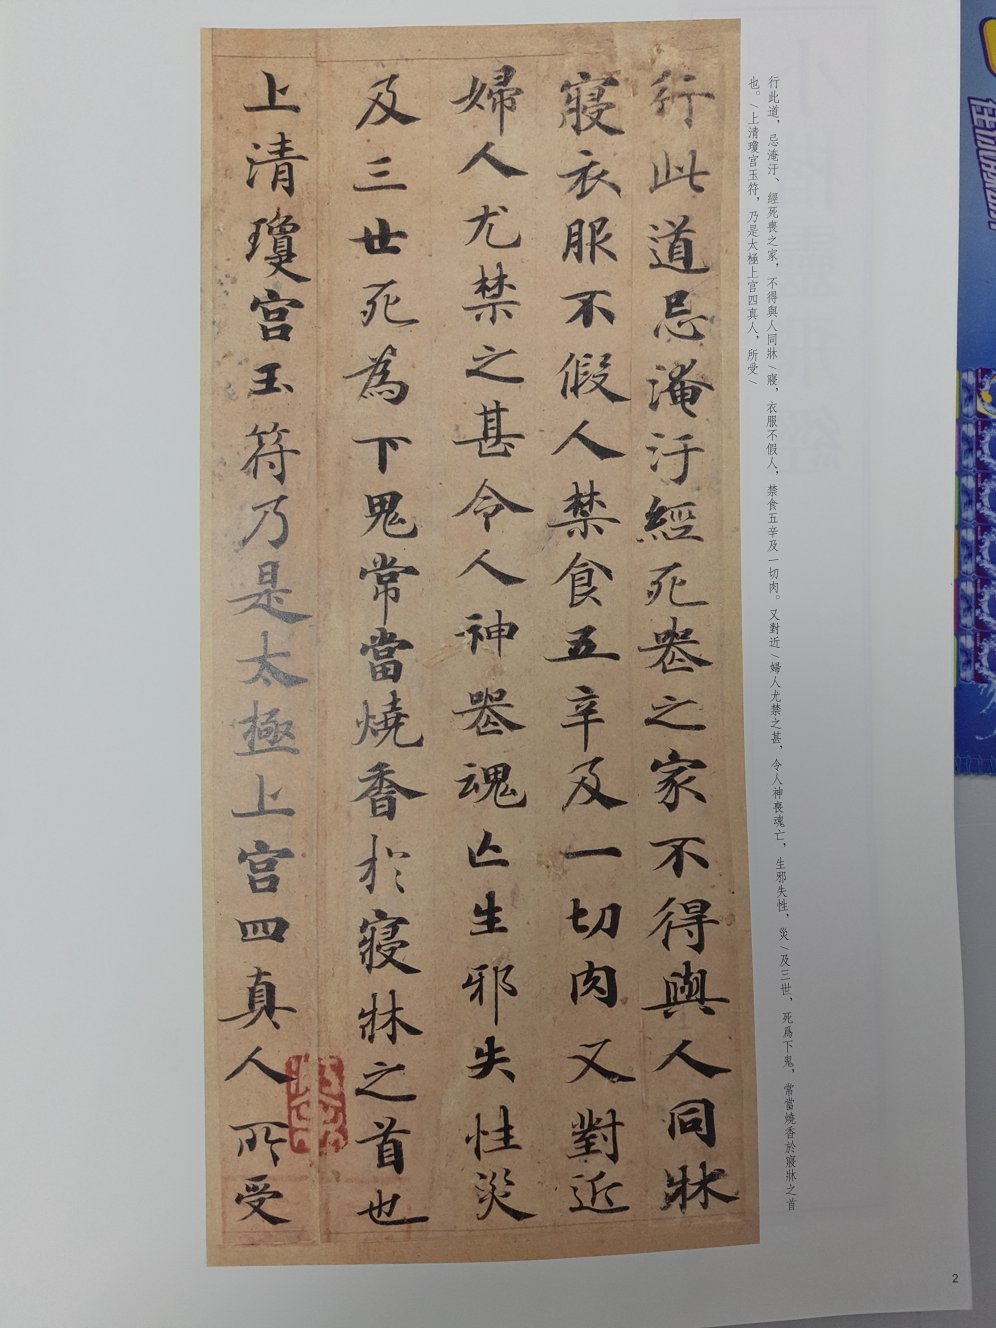 行此道，忌淹汙、經死喪之家，不得與人同牀\寢，衣服不假人，禁食五辛及一切肉。又對近\婦人尤禁之甚，令人神喪魂亡，生邪失性，災\及三世，死爲下鬼，常當燒香於寢牀之首
也。\上清瓊宫玉符，乃是太極上宫四真人，所受\
行此道忌淹汙經死喪之家不得與人同牀
寢衣服不假人禁食五辛及一切肉又對近
婦人尤禁之甚令人神喪魂亡生邪失性災
及三世死為下鬼常當燒香於寢牀之首也
上清瓊宫玉符乃是太極上宫四真人所受
2